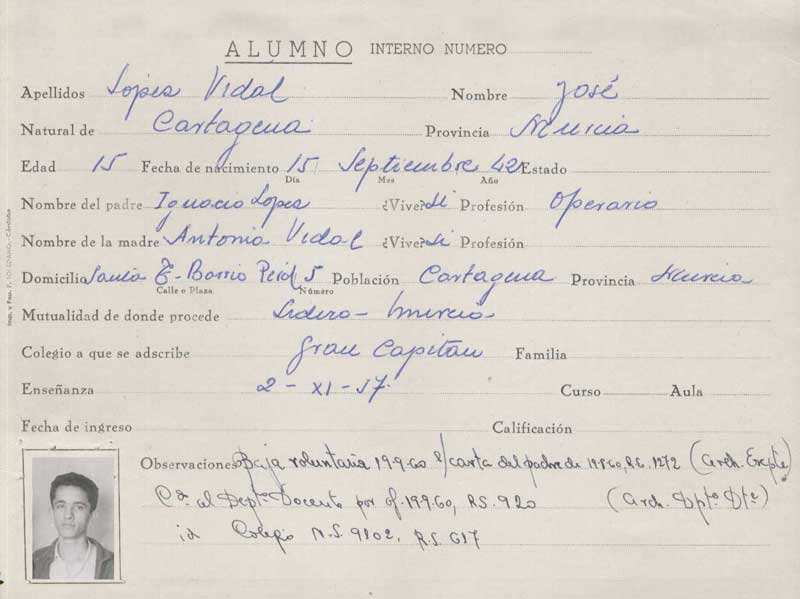 ALUMNO INTERNO NUMERO
Apellidos Lopez Vidal Nombre José
Natural de Cartagena Provincia Murcia
Edad 15 Fecha de nacimiento 15 Septiembre 42 Estado
Día Mes Año
Nombre del padre Ignacio Lopez ¿Vive? Si Profesión Operario
Nombre de la madre Antonia Vidal ¿Vive? Si Profesión
Domicilio Barrio Peral 5 Población Cartagena Provincia Murcia
Calle o Plaza Número
Mutualidad de donde procede Sidero - Murcia
Colegio a que se adscribe Gran Capitan Familia
Enseñanza 2 - XI - 57. Curso Aula
Fecha de ingreso Calificación
Observaciones Baja voluntaria 19-9-60 s/carta del padre de R.G. 1272 (Arch. Expte)
Cª al Dptº Docente por of. 19.9.60, RS. 920 (Arch. Dptº Dte)
id Colegio N.S. 9102, R.S. 617